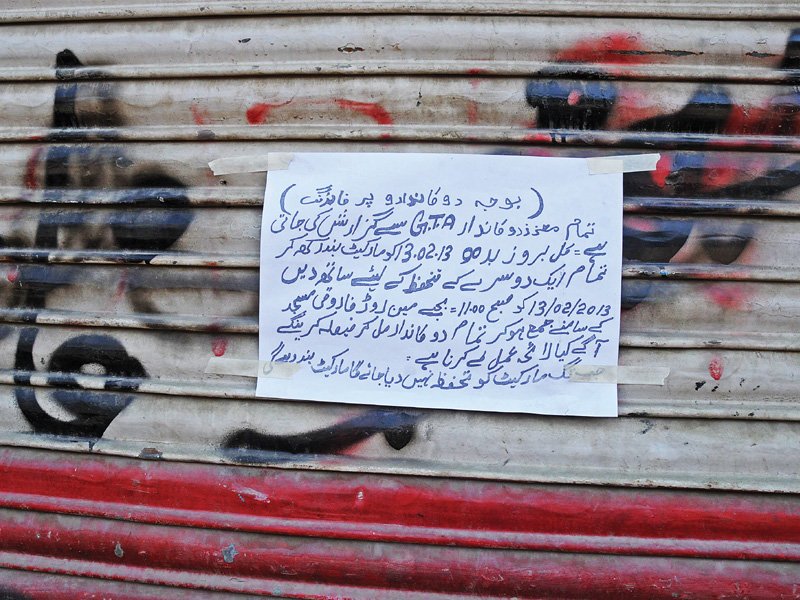 (بوجہ دوکاندارو پر فائرنگ)
تمام معزز دوکاندار G.T.A سے گزارش کی جاتی
ہے = کل بروز بدھ 13.02.13 کو مارکیٹ بند رکھ کر
تمام ایک دوسرے کے تحفظ کے لیئے ساتھ دیں
13/02/2013 کو صبح 11:00= بجے مین روڈ فاروقی مسجد
کے سامنے جمع ہوکر تمام دوکاندار مل کر فیصلہ کرینگے
آگے کیا لائحہ عمل طے کرنا ہے:
تک مارکیٹ کو تحفظ نہیں دیا جائے گا مارکیٹ بند رہے گی